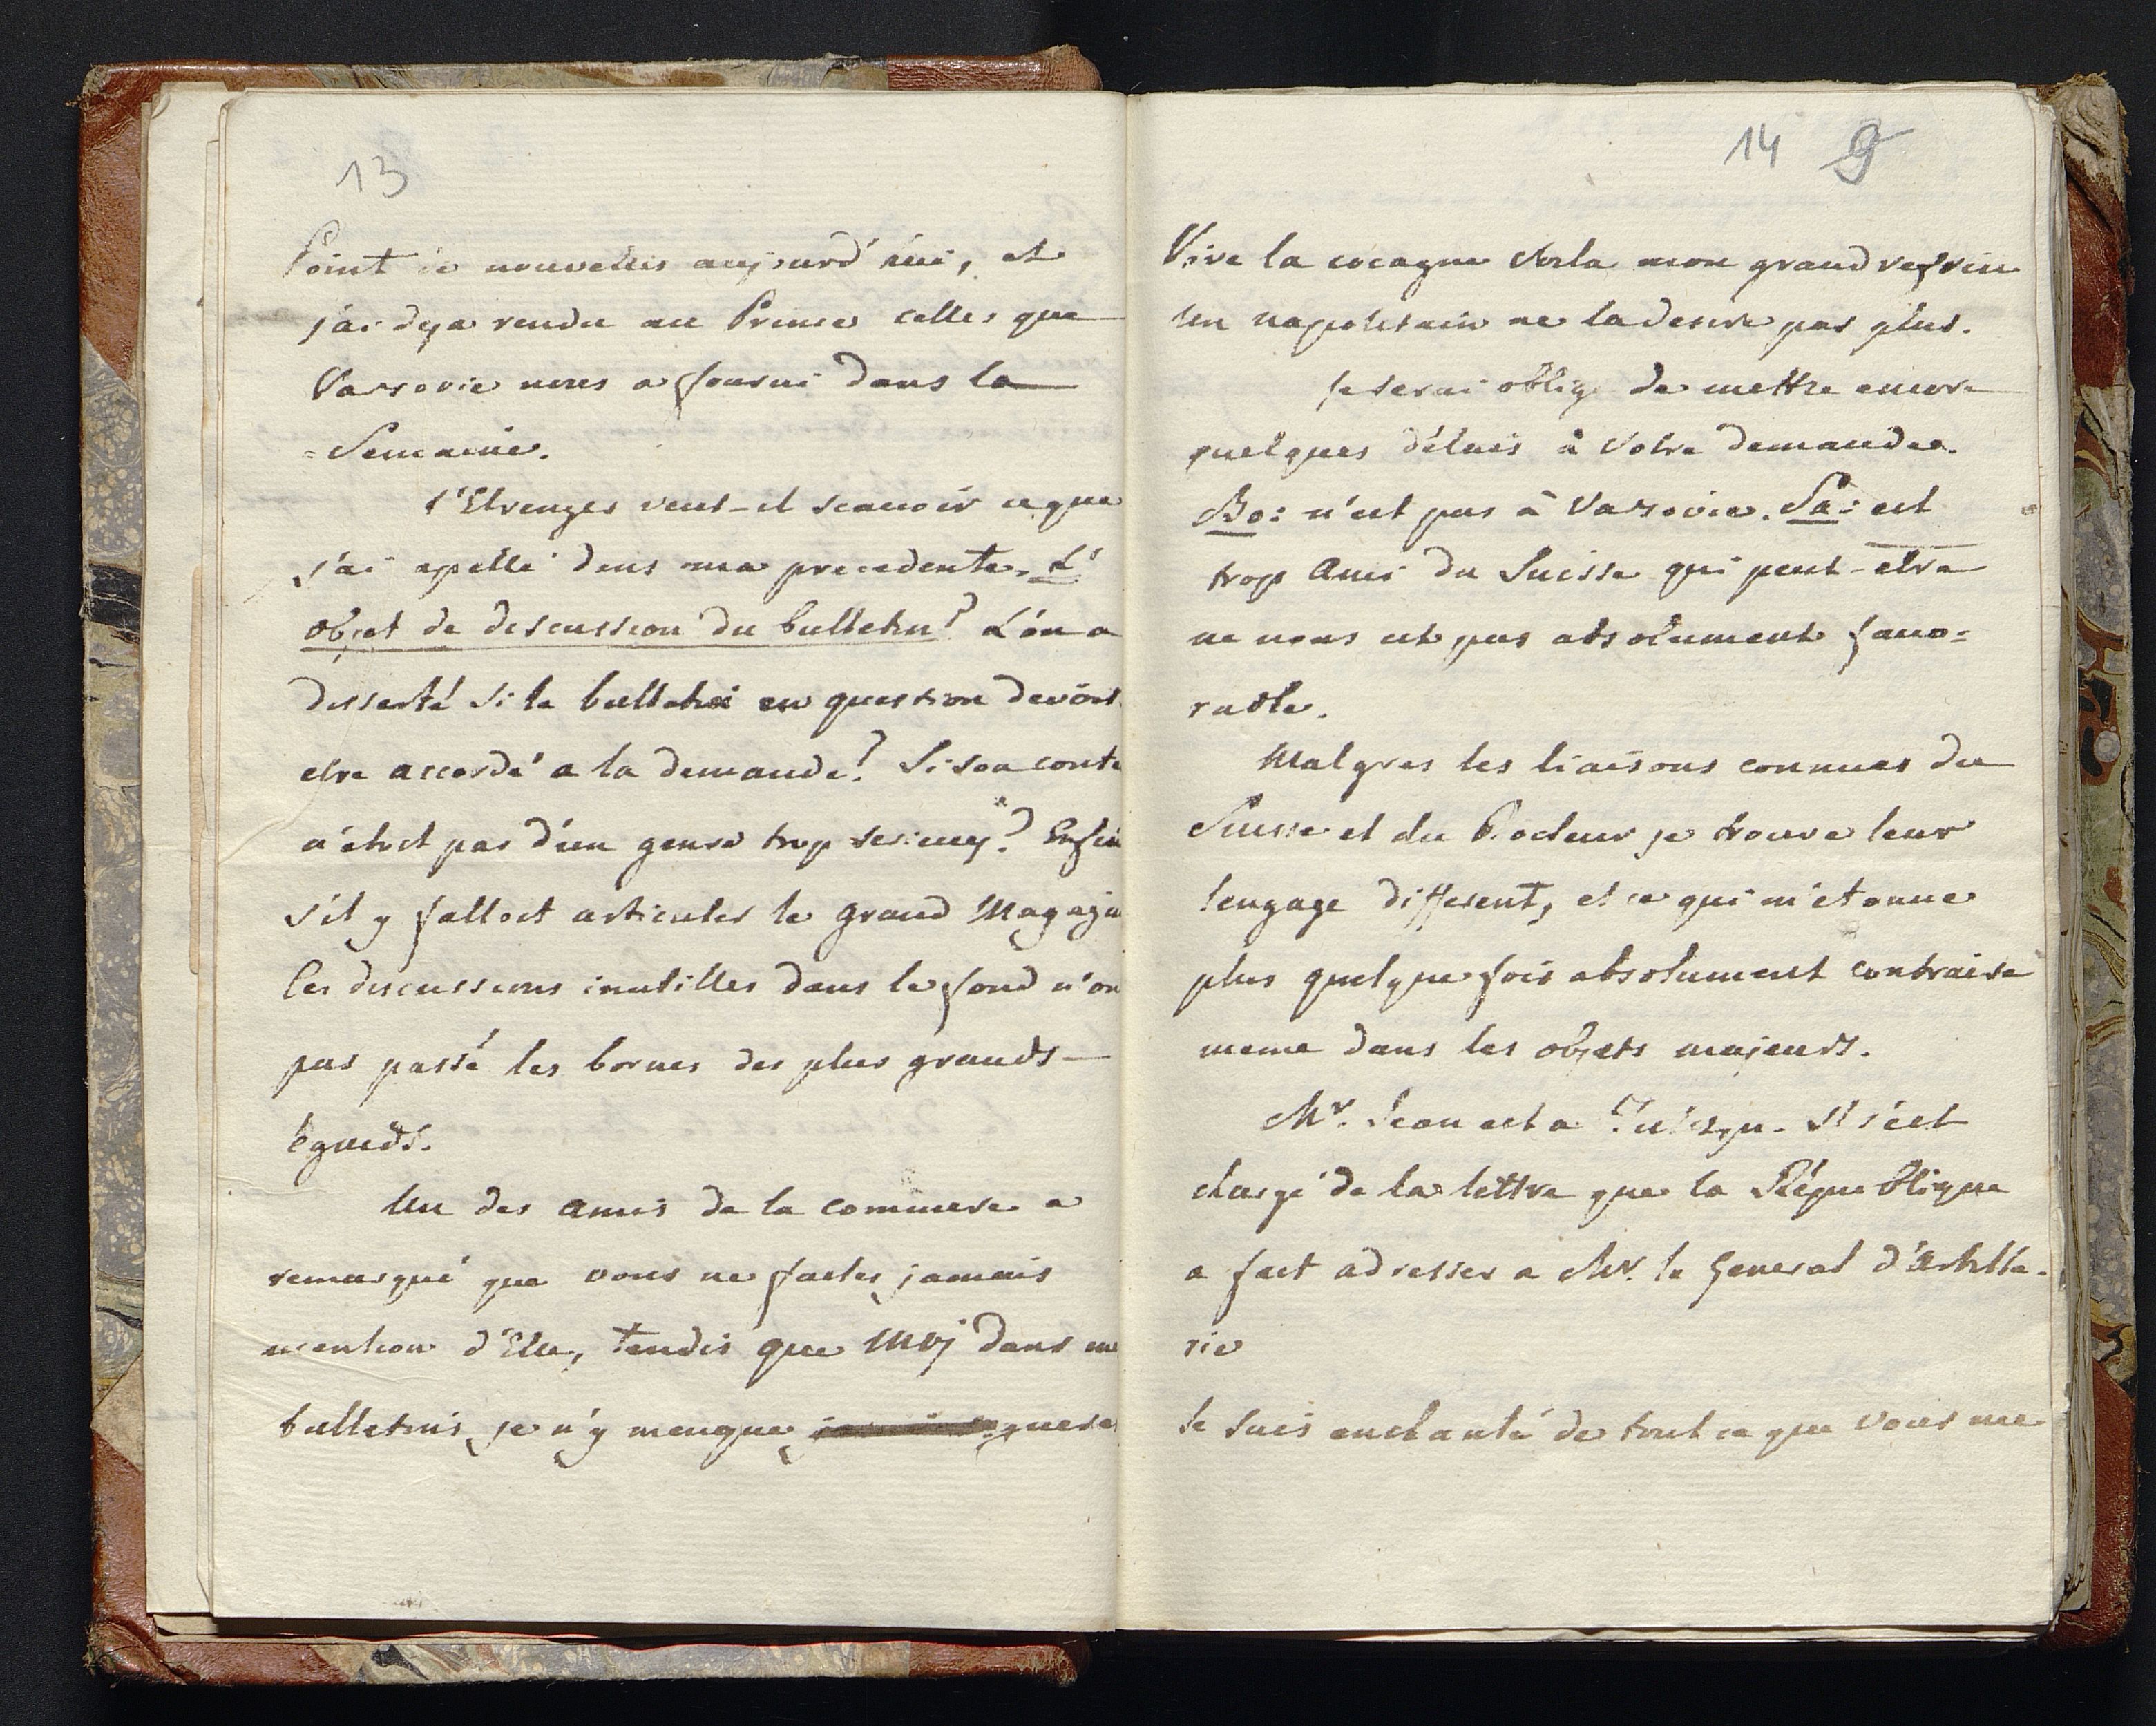 13
Point de nouvelles aujourd'hui, et
j'ai deja rendu au Prince celles que
Varsovie nous a fourni dans la
=Semaine.
l'Etrenger veut-il scauoir ce que
j'ai apellé dans ma precedente. L'
objet de discussion du bulletin? L'on a
disserté si le bulletin en question devoit
etre accordé a la demande? Si son conte
n'étoit pas d'un genre trop serieux? Enfin
s'il y falloit articuler le grand Magazin
Ces discussions inutilles dans le fond n'on
pas passé les bornes des plus grands
égards.
Un des amis de la commere a
remarqué que vous ne faites jamais
mention d'Elle, tendis que Moj dans me
bulletins, je n'y menque guere
14 9
Vive la cocagne voila mon grand refrein
Un napolitain ne la desire pas plus.
Je serai obligé de mettre encore
quelques délais à Votre demande.
Bo: n'est pas à Varsovie. Sa: est
trop Ami du Suisse qui peut-etre
ne nous est pas absolument favo=
rable.
Malgres les liaisons connues du
Suisse et du Docteur je trouve leur
lengage different, et ce qui m'etonne
plus quelque fois absolument contraire
meme dans les objets majeurs.
Mr. Jean est a Il s'est
chargé de la lettre que la République
a fait adresser a Mr. le General d'Artille-
rie
Je suis enchanté de tout ce que vous me